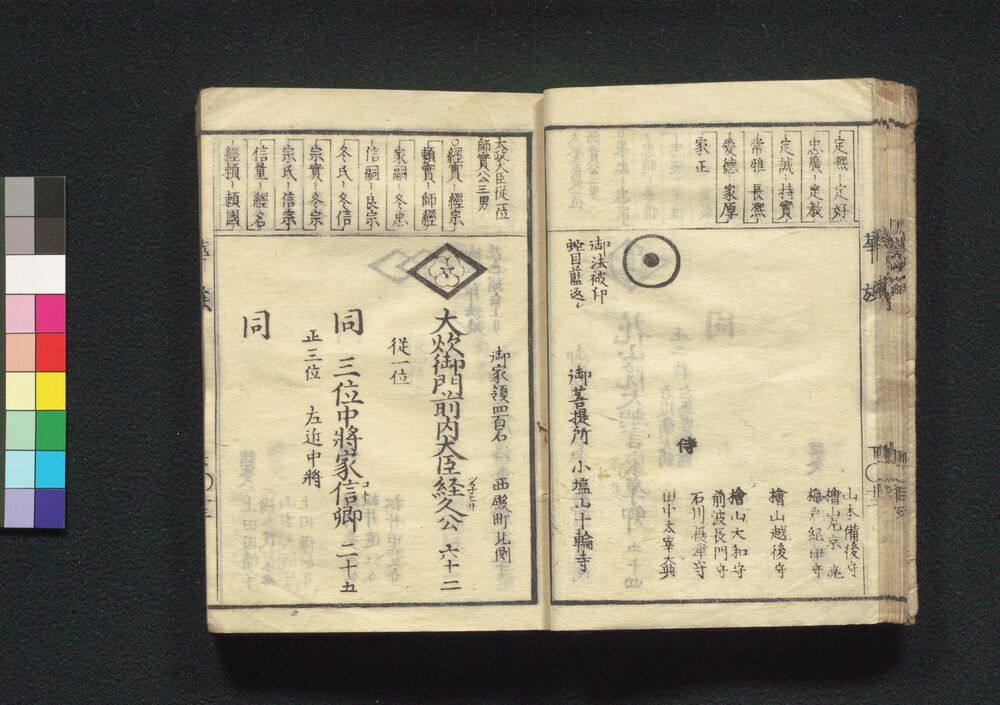 定熈 定好
忠廣 定教
定誠 持實
常雅 長熈
愛德 家厚
家正
山本備後守
檜山左京
梅戸紀伊守
檜山越後守
檜山大和守
前波長門守
石川
田中太宰大典
侍
御法被印
蛇目藍返し
御菩提所 小塩山十輪寺
華族
太政大臣従一位
師實公三男
○經實 經宗
頼實 師經
家嗣 冬忠
信嗣 良宗
冬氏 冬信
宗實 冬宗
宗氏 信宗
信量 經名
經頼 頼國
御家領四百石 西殿町北側
大炊御門前内大臣経久公 六十二
従一位
同 三位中將家信卿 二十五
正三位 左近中將
同